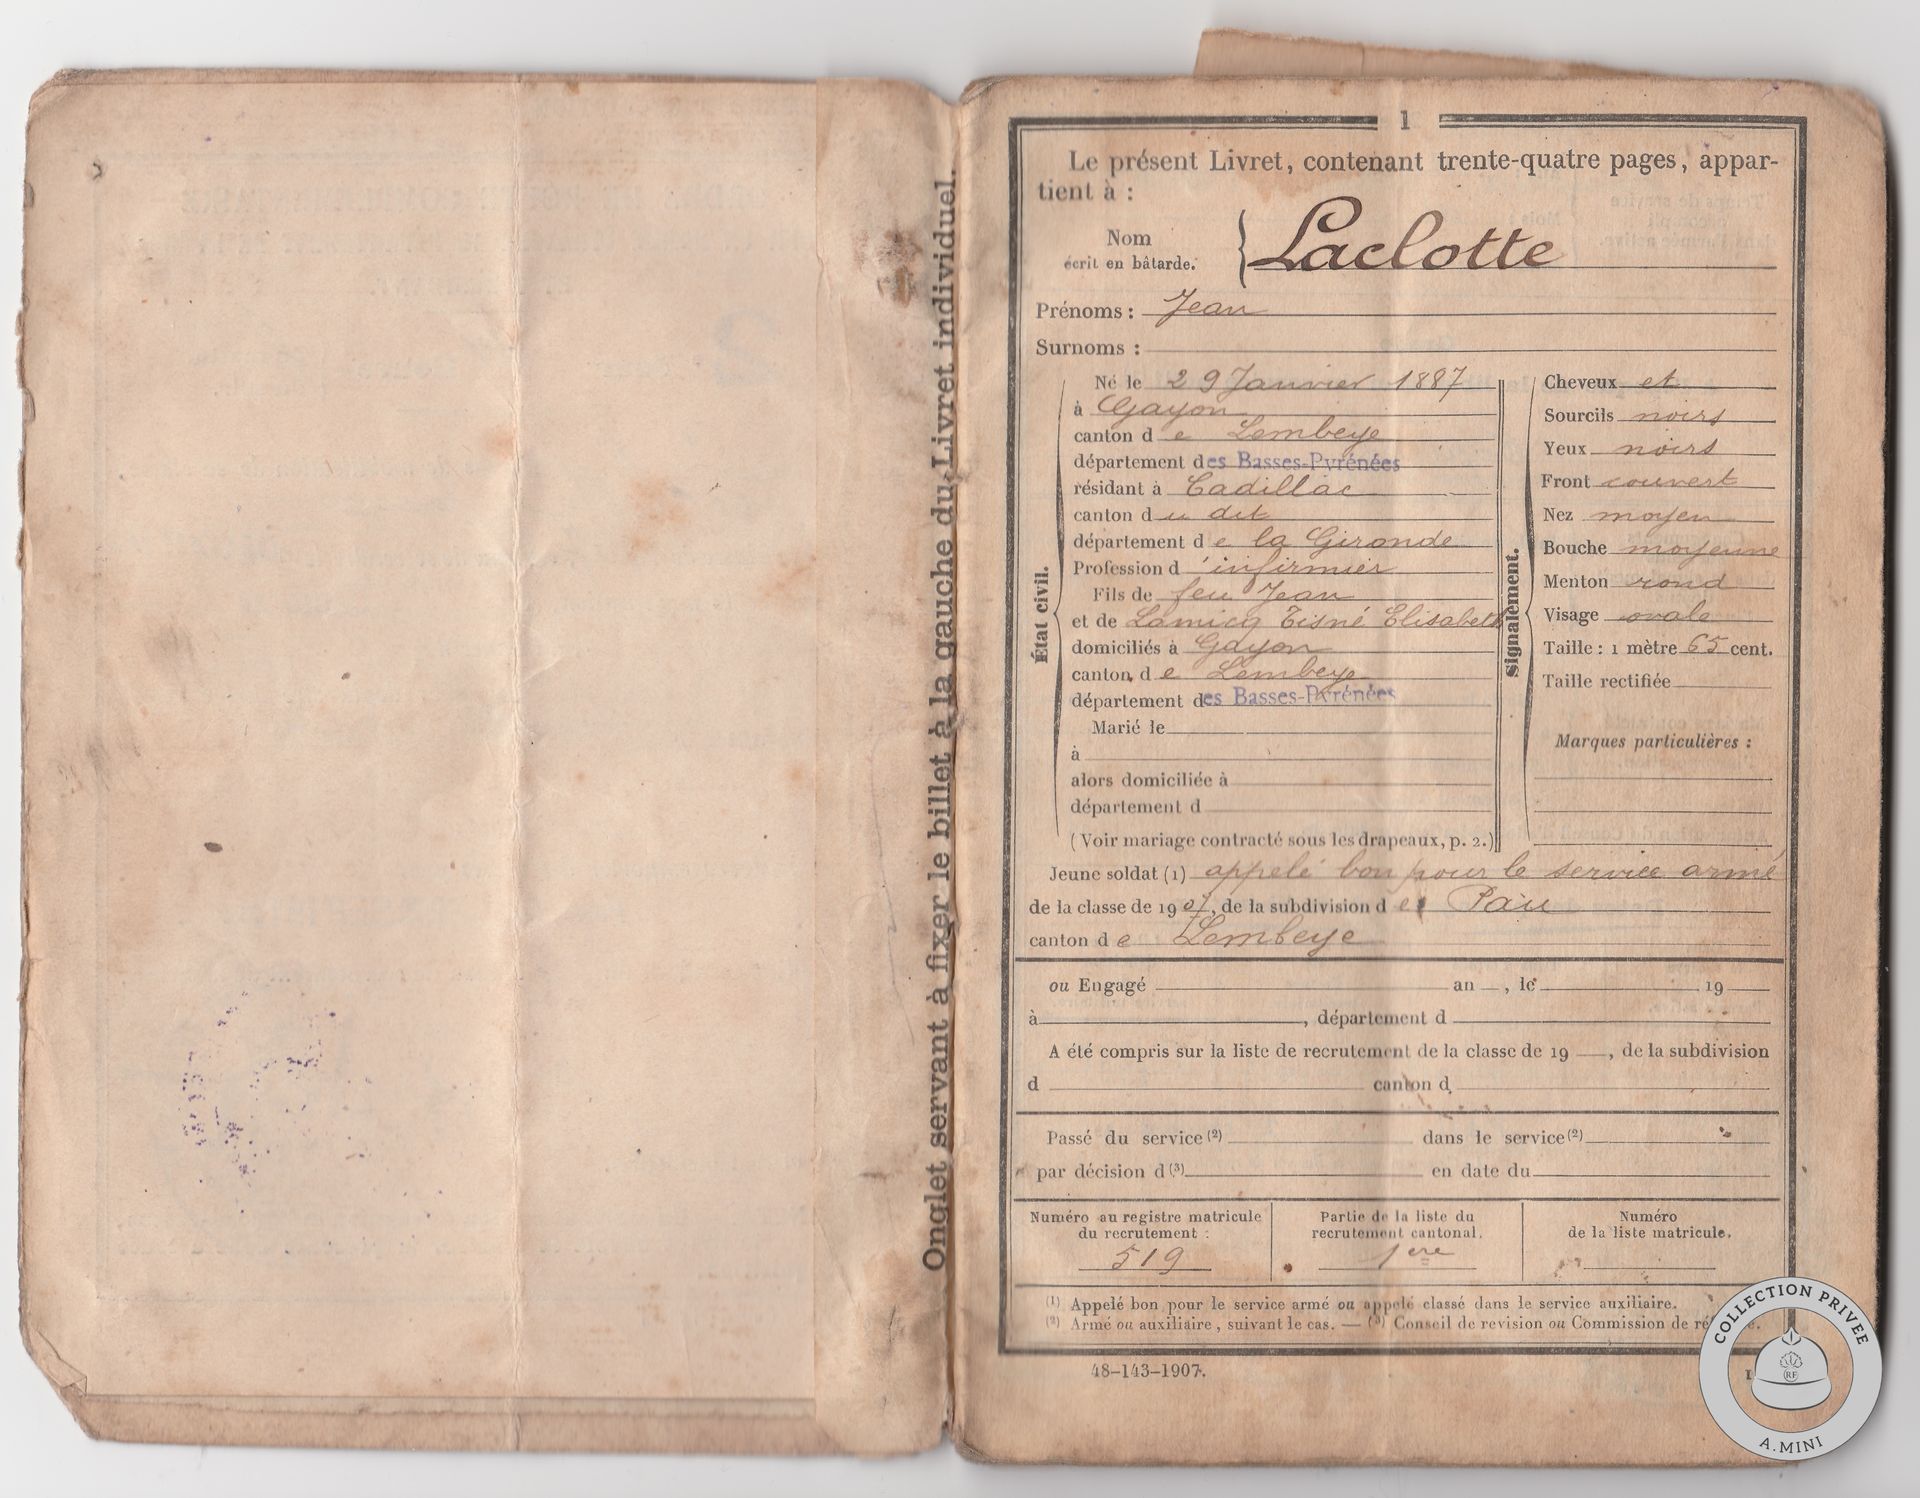 Onglet servant à fixer le billet à la gauche du Livret individuel.
1
Le présent Livret, contenant trente-quatre pages, appar-
tient à :
Nom
écrit en bâtarde.
Laclotte
Prénoms : Jean
Surnoms :
État civil.
Né le 29 Janvier 1887
à Gayon
canton de Lembeye
département des Basses-Pyrénées
résidant à Cadillac
canton du dit
département de la Gironde
Profession d'infirmier
Fils de feu Jean
et de Lamicq Tisné Elisabeth
domiciliés à Gayon
canton de Lembeye
département des Basses-Pyrénées
Marié le
à
alors domiciliée à
département d
(Voir mariage contracté sous les drapeaux, p. 2.)
Signalement.
Cheveux et
Sourcils noirs
Yeux noirs
Front couvert
Nez moyen
Bouche moyenne
Menton rond
Visage ovale
Taille : 1 mètre 65 cent.
Taille rectifiée
Marques particulières :
Jeune soldat (1) appelé bon pour le service armé
de la classe de 1907, de la subdivision de Pau
canton de Lembeye
ou Engagé an , le 19
à , département d
A été compris sur la liste de recrutement de la classe de 19 , de la subdivision
d canton d
Passé du service (2) dans le service (2)
par décision d (3) en date du
Numéro au registre matricule
du recrutement :
519
Partie de la liste du
recrutement cantonal.
1ère
Numéro
de la liste matricule.
(1) Appelé bon pour le service armé ou appelé classé dans le service auxiliaire.
(2) Armé ou auxiliaire, suivant le cas. — (3) Conseil de revision ou Commission de
48-143-1907.
COLLECTION PRIVEE
RF
A.MINI